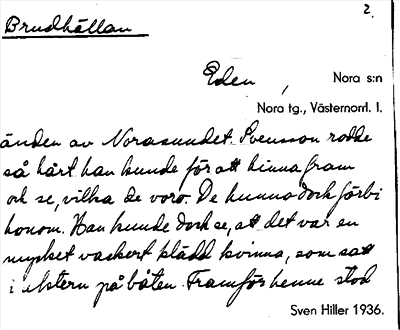 2.
Brudhällan
Eden, Nora s:n
Nora tg., Västernorrl. l.
änden av Norasundet. Svensson rodde
så hårt han kunde för att hinna fram
och se, vilka de voro. De hunno dock förbi
honom. Han kunde dock se, att det var en
mycket vackert klädd kvinna, som satt
i aktern på båten. Framför henne stod
Sven Hiller 1936.